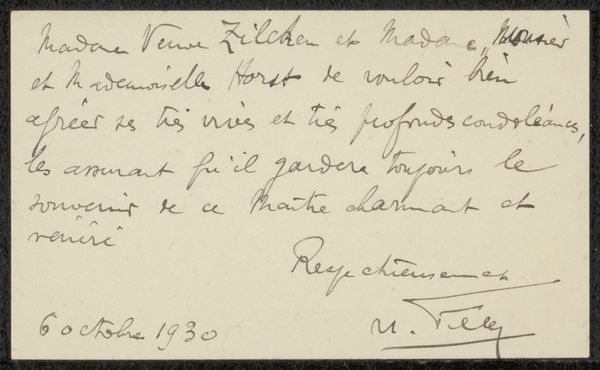 Madame Veuve Zilcken et Madame, Monsier
et Mademoiselle Horst de vouloir bien
agréer ses très vives et très profonds condoléances,
les assurant qu'il gardera toujours le
souvenir de ce Maître charmant et
vénéré
Respectueusement
6 octobre 1930